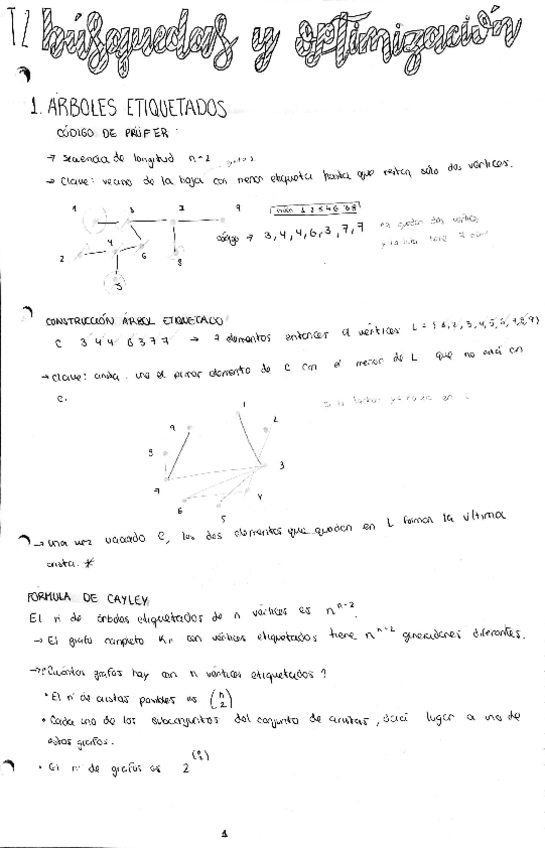 T2 búsquedas y optimización
1. ÁRBOLES ETIQUETADOS
CÓDIGO DE PRÜFER:
→ secuencia de longitud n-2
→ Clave: vecino de la hoja con menor etiqueta hasta que restan sólo dos vértices.
1 3 7 9
código → 3, 4, 4, 6, 3, 7, 7 no quedan dos vértices
2 4 6 8
5
CONSTRUCCIÓN ÁRBOL ETIQUETADO
C 3 4 4 6 3 7 7 → 7 elementos entonces 9 vértices L = {1, 2, 3, 4, 5, 6, 7, 8, 9}
→ Clave: une el primer elemento de C con el menor de L que no está en
C.
1
9 2
8
3
7
6 4
5
→ una vez vaciado C, los dos elementos que quedan en L forman la última
arista. *
FÓRMULA DE CAYLEY
El nº de árboles etiquetados de n vértices es n^{n-2}.
→ El grafo completo Kn con vértices etiquetados tiene n^{n-2} generadores diferentes.
→ ¿Cuántos grafos hay con n vértices etiquetados?
• El nº de aristas posibles es (n 2)
• Cada uno de los subconjuntos del conjunto de aristas, dará lugar a uno de
estos grafos.
• El nº de grafos es 2^{(n 2)}
1